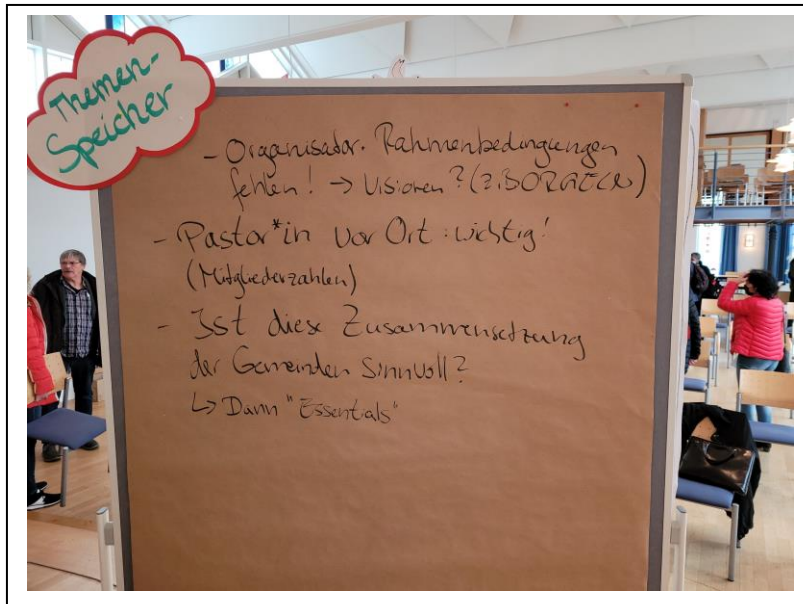 Themen-
Speicher
- Organisator. Rahmenbedingungen
fehlen! → Visionen?
- Pastor*in vor Ort: wichtig!
(Mitgliederzahlen)
- Ist diese Zusammensetzung
der Gemeinden sinnvoll?
↳ Dann "Essentials"